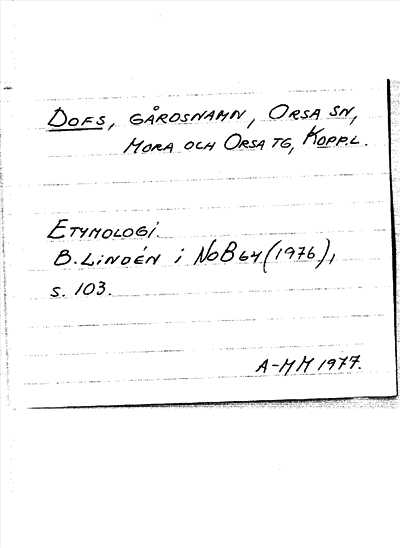 DOFS, GÅRDSNAMN, ORSA SN,
MORA OCH ORSA TG, KOPP.L.
ETYMOLOGI.
B. LINDÉN i NoB 64 (1976),
s. 103.
A-MM 1977.